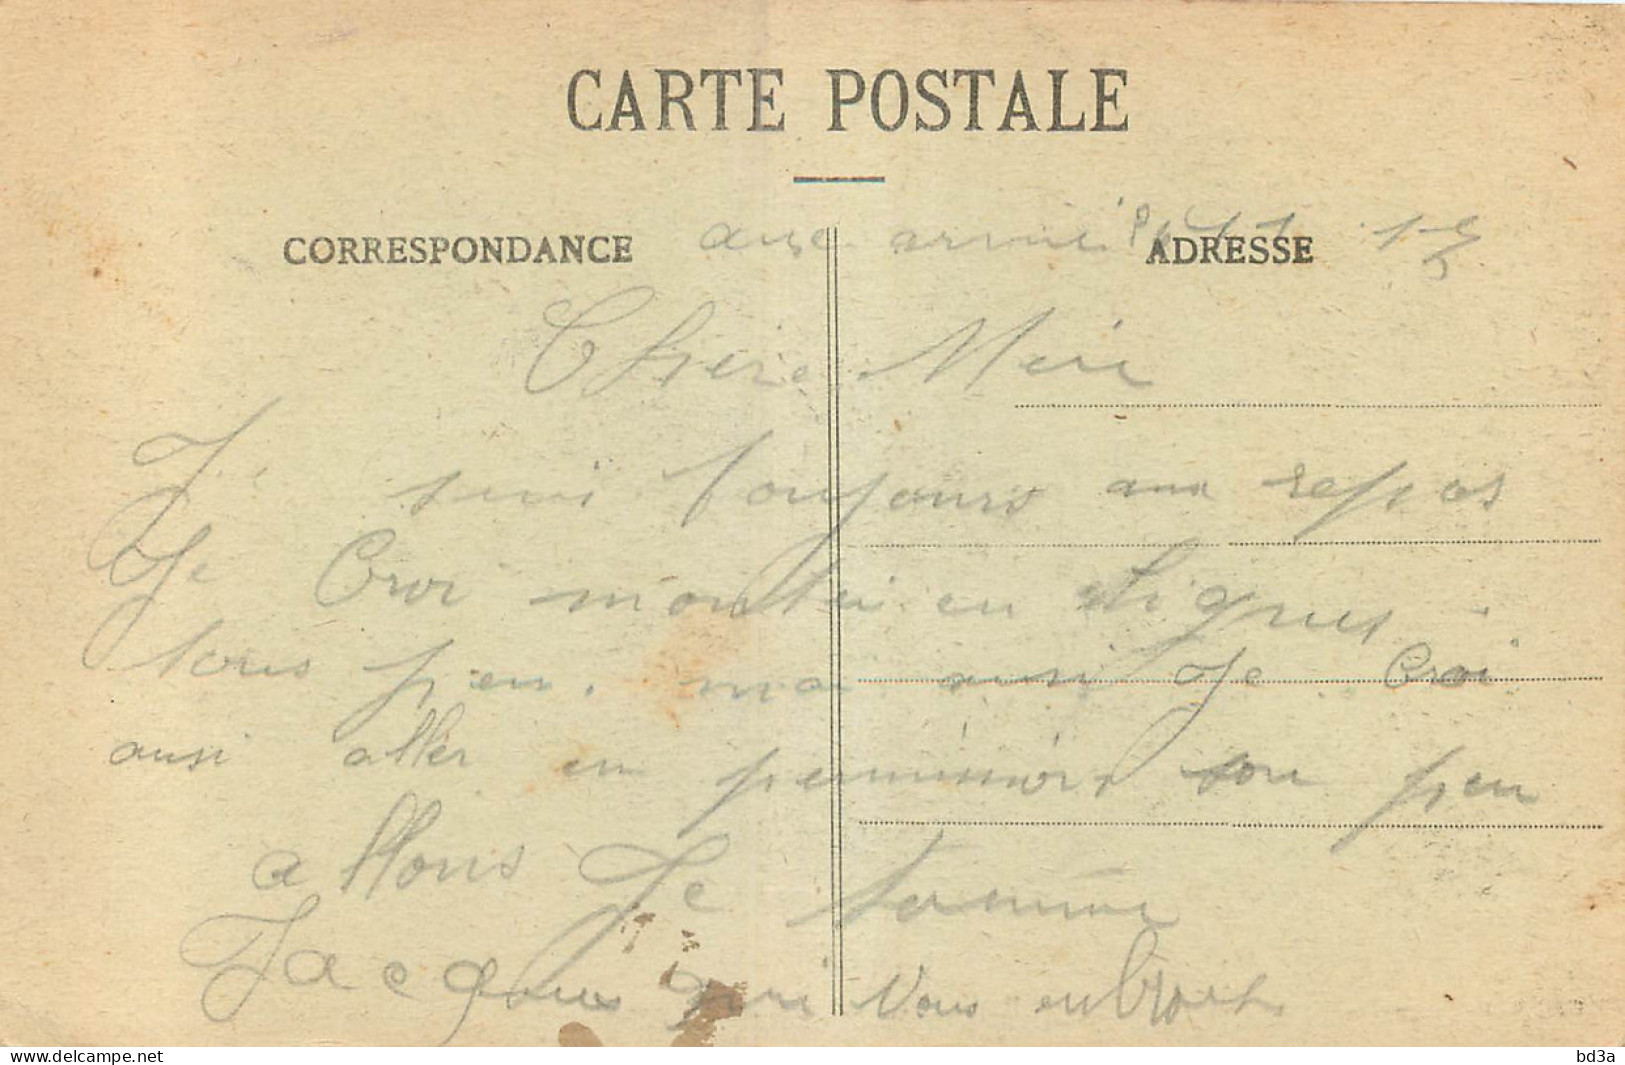 CARTE POSTALE
CORRESPONDANCE
ADRESSE
aux armé
Chere Mere
Je suis toujours aux repos
Je Croi monter en Lignes
sous peu. moi ausi Je Croi
ausi aller en permission sou peu
allons Je termine
Jacques qui Vous
delcampe.net
bd3a